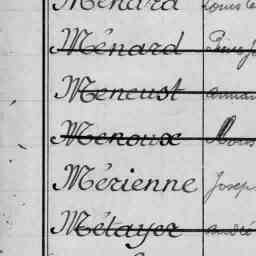 Ménard Louis
Ménard
Meneust
Menoux
Mérienne Josep
Métayer André